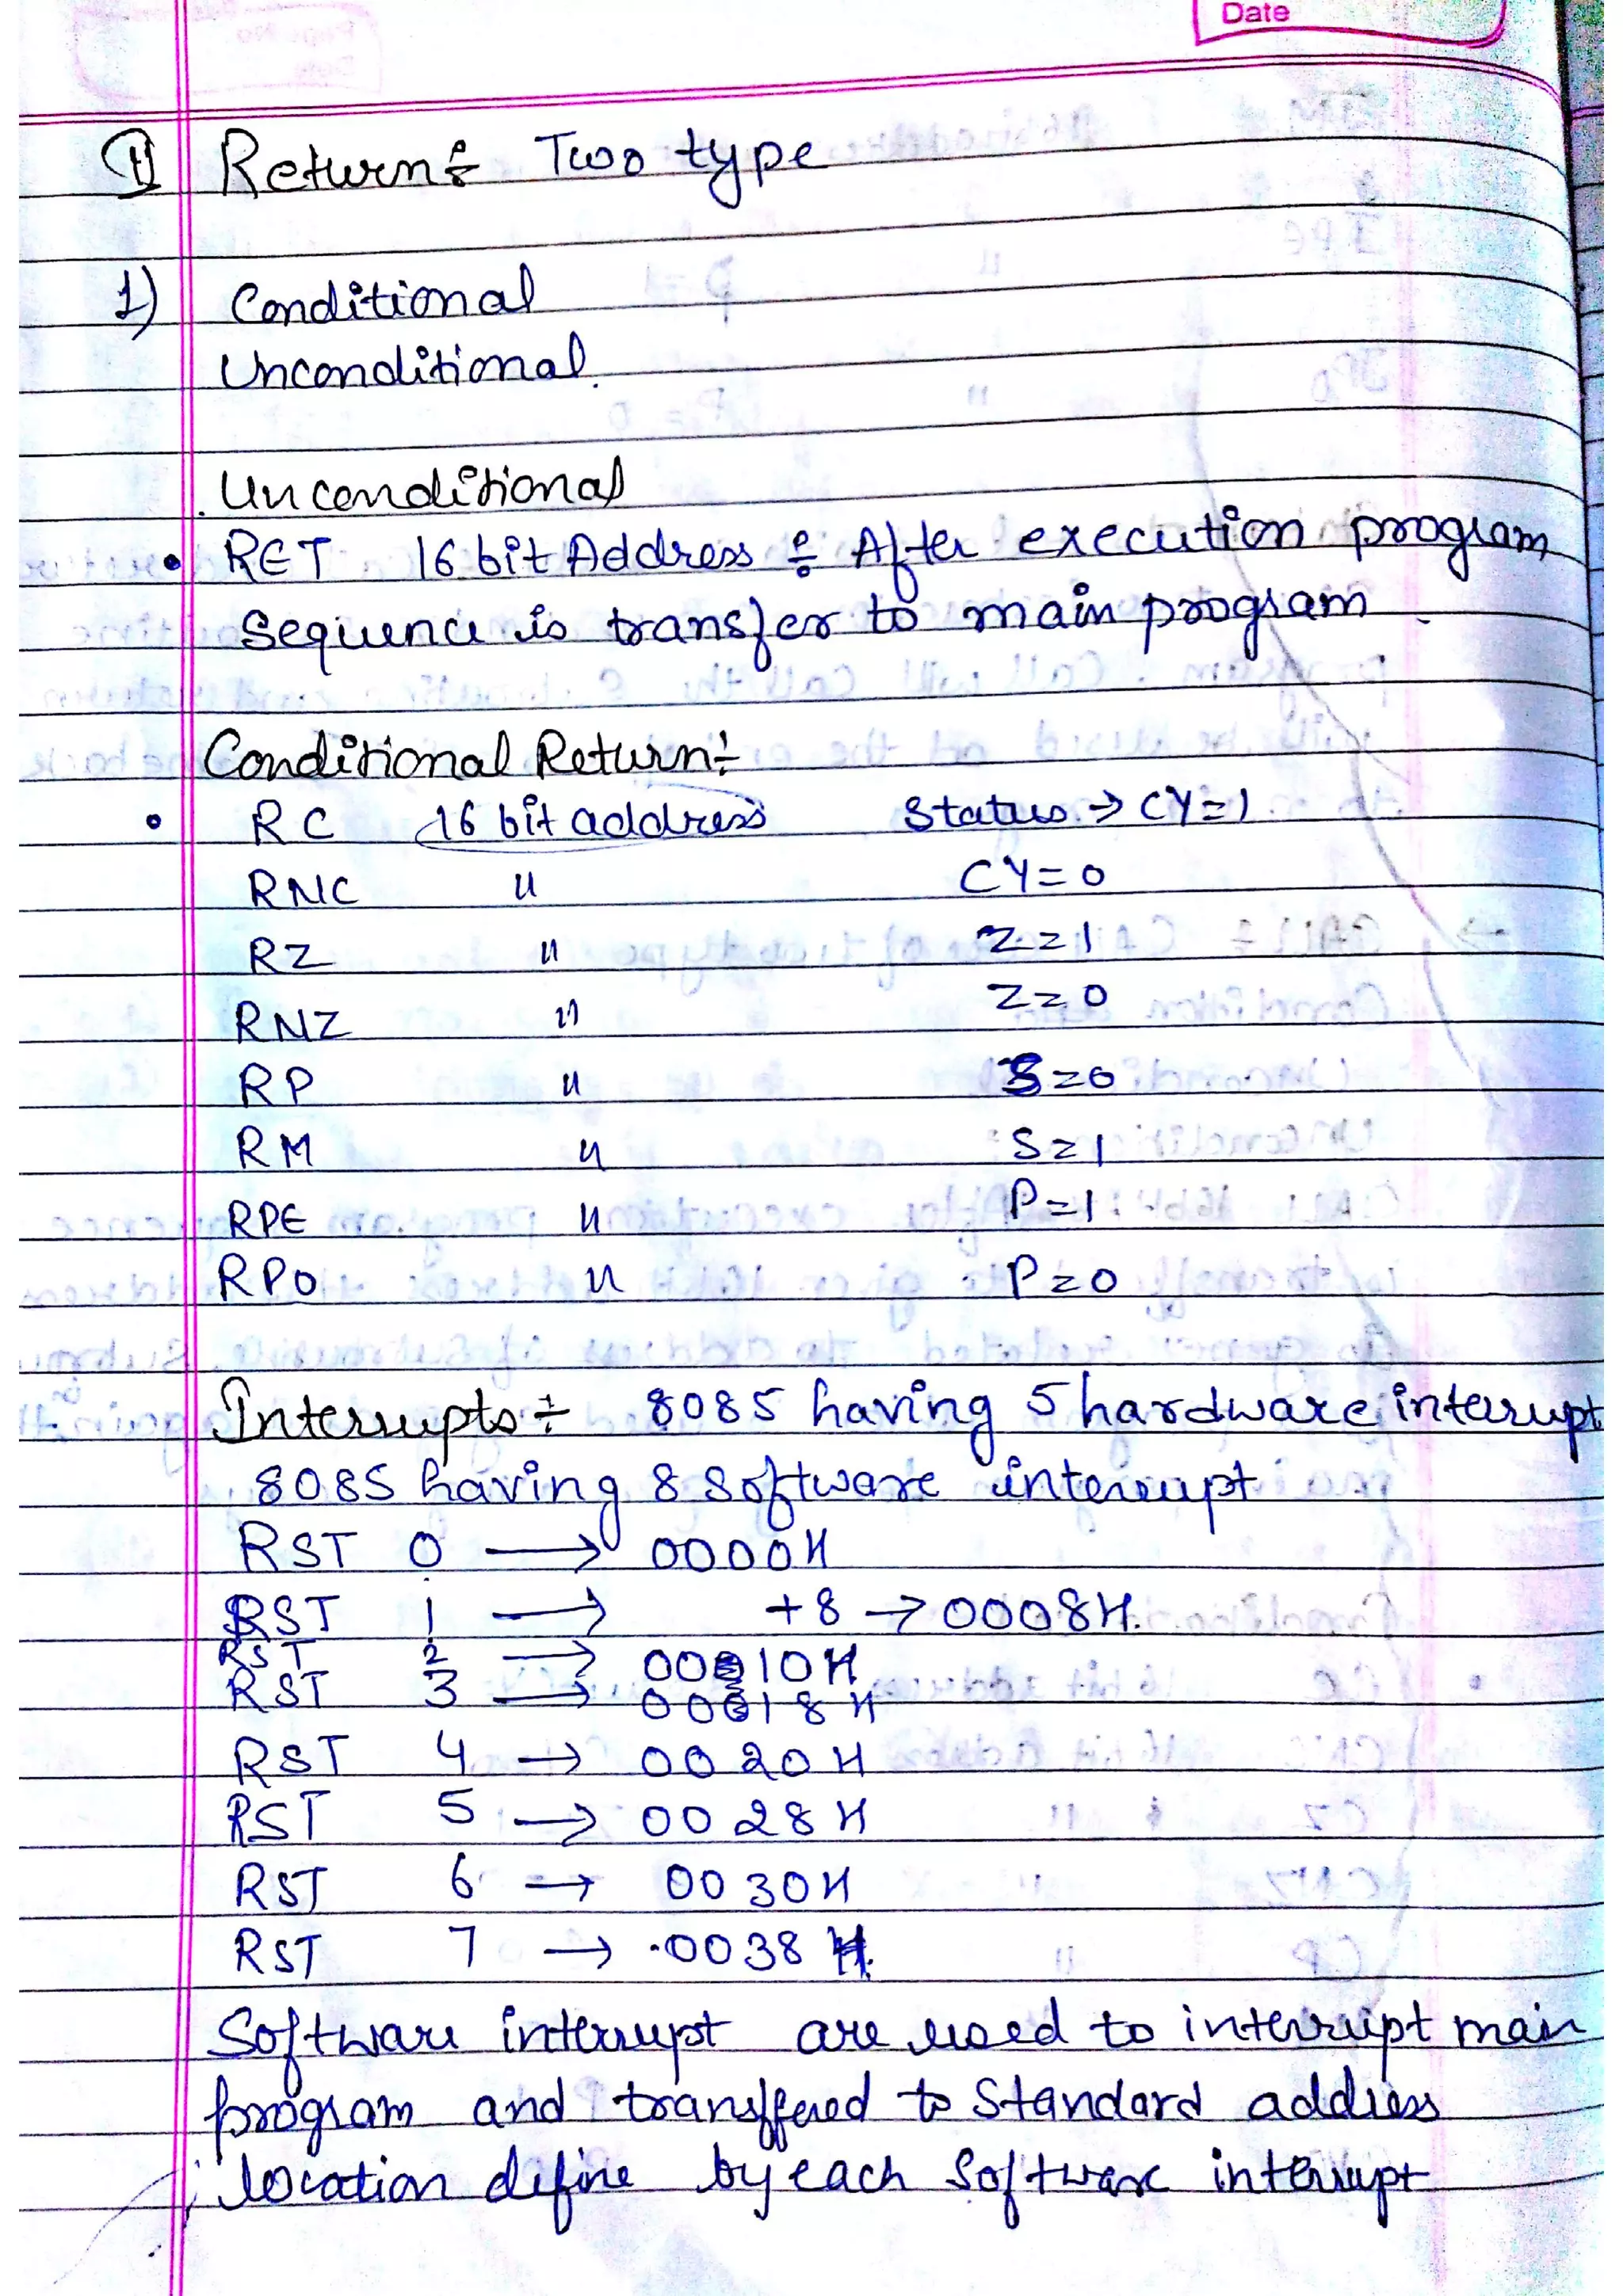 Date
II Return÷ Two type
1) Conditional
Unconditional.
Unconditional
• RET 16 bit Address ÷ After execution program
Sequence is transfer to main program
Conditional Return÷
• RC 16 bit address Status → CY=1
RNC " CY=0
RZ " Z=1
RNZ " Z=0
RP " S=0
RM " S=1
RPE " P=1
RPO " P=0
Interrupts÷ 8085 having 5 hardware interrupt
8085 having 8 software interrupt
RST 0 → 0000H
RST 1 → +8 → 0008H.
RST 2 → 0010H
RST 3 → 0018H
RST 4 → 0020H
RST 5 → 0028H
RST 6 → 0030H
RST 7 → 0038H.
Software interrupt are used to interrupt main
program and transffered to Standard address
location define by each Software interrupt